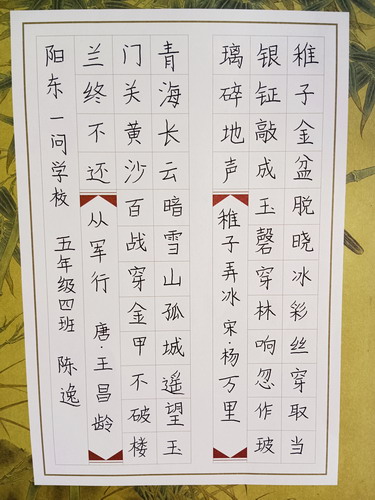 稚子金盆脱晓冰彩丝穿取当
银钲敲成玉磬穿林响忽作玻
璃碎地声 稚子弄冰 宋·杨万里
青海长云暗雪山孤城遥望玉
门关黄沙百战穿金甲不破楼
兰终不还 从军行 唐·王昌龄
阳东一问学校 五年级四班 陈逸